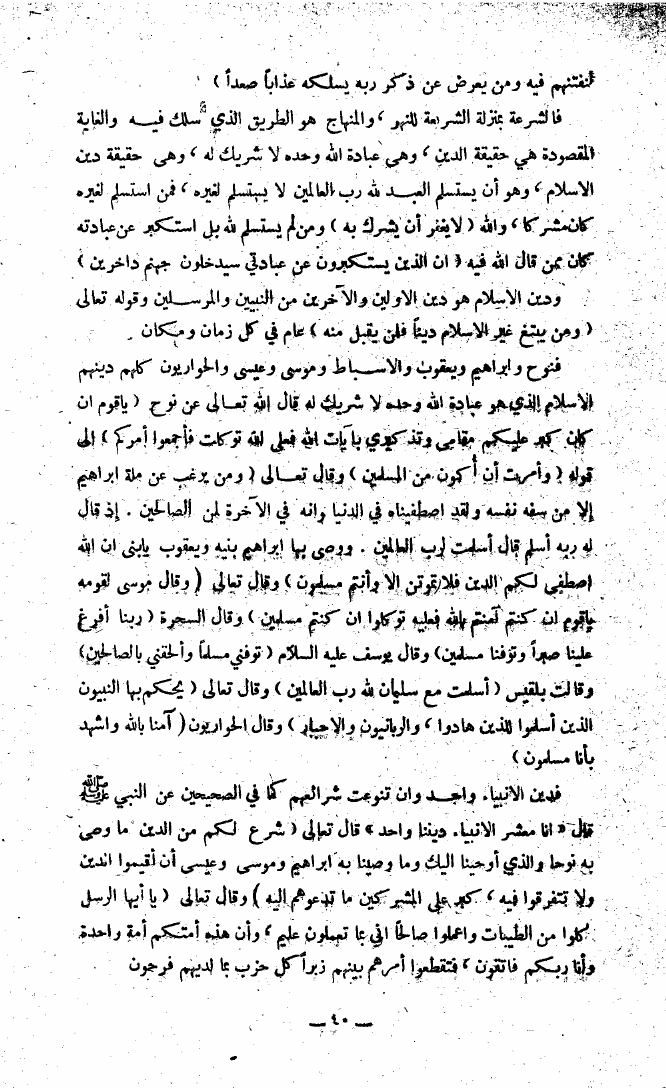 لنفتنهم فيه ومن يعرض عن ذكر ربه يسلكه عذاباً صعداً )
فالشرعة بمنزلة الشريعة للنهر ، والمنهاج هو الطريق الذي سلك فيه والغاية
المقصودة هي حقيقة الدين ، وهي عبادة الله وحده لا شريك له ، وهى حقيقة دين
الاسلام ، وهو أن يستسلم العبد لله رب العالمين لا يستسلم لغيره ، فمن استسلم لغيره
كان مشركا ، والله ( لا يغفر أن يشرك به ) ومن لم يستسلم لله بل استكبر عن عبادته
كان ممن قال الله فيه ( ان الذين يستكبرون عن عبادتي سيدخلون جهنم داخرين )
ودين الاسلام هو دين الاولين والآخرين من النبيين والمرسلين وقوله تعالى
( ومن يبتغ غير الاسلام ديناً فلن يقبل منه ) عام في كل زمان ومكان .
فنوح وابراهيم ويعقوب والاسباط وموسى وعيسى والحواريون كلهم دينهم
الاسلام الذي هو عبادة الله وحده لا شريك له قال الله تعالى عن نوح ( ياقوم ان
كان كبر عليكم مقامى وتذكيري بآيات الله فعلى الله توكلت فأجمعوا أمركم ) الى
قوله ( وأمرت أن أكون من المسلمين ) وقال تعالى ( ومن يرغب عن ملة ابراهيم
إلا من سفه نفسه ولقد اصطفيناه في الدنيا وانه في الآخرة لمن الصالحين . إذ قال
له ربه أسلم قال أسلمت لرب العالمين . ووصى بها ابراهيم بنيه ويعقوب يابنى ان الله
اصطفى لكم الدين فلا تموتن الا وأنتم مسلمون ) وقال تعالى ( وقال موسى لقومه
ياقوم ان كنتم آمنتم بالله فعليه توكلوا ان كنتم مسلمين ) وقال السحرة ( ربنا أفرغ
علينا صبراً وتوفنا مسلمين ) وقال يوسف عليه السلام ( توفني مسلماً وألحقني بالصالحين )
وقالت بلقيس ( أسلمت مع سليمان لله رب العالمين ) وقال تعالى ( يحكم بها النبيون
الذين أسلموا للذين هادوا ، والربانيون والاحبار ) وقال الحواريون ( آمنا بالله واشهد
بأنا مسلمون )
فدين الانبياء واحد وان تنوعت شرائعهم كما في الصحيحين عن النبي ﷺ
قال « انا معشر الانبياء ديننا واحد » قال تعالى ( شرع لكم من الدين ما وصى
به نوحا والذي أوحينا اليك وما وصينا به ابراهيم وموسى وعيسى أن أقيموا الدين
ولا تتفرقوا فيه ، كبر على المشركين ما تدعوهم اليه ) وقال تعالى ( يا أيها الرسل
كلوا من الطيبات واعملوا صالحاً انى بما تعملون عليم ، وأن هذه أمتكم أمة واحدة
وأنا ربكم فاتقون ، فتقطعوا أمرهم بينهم زبراً كل حزب بما لديهم فرحون
— ٤٠ —